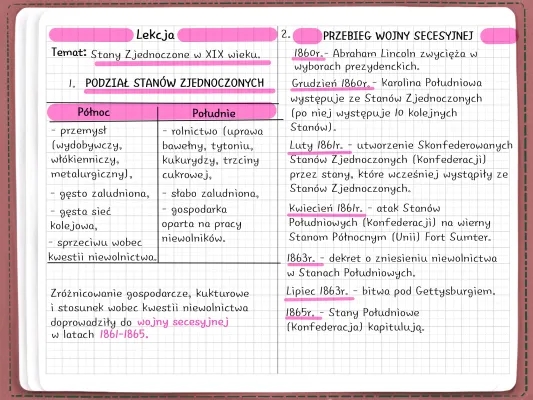 Lekcja
Temat: Stany Zjednoczone w XIX wieku.
1. PODZIAŁ STANÓW ZJEDNOCZONYCH
Północ
- przemysł
(wydobywczy,
włókienniczy,
metalurgiczny),
- gęsto zaludniona,
- gęsta sieć
kolejowa,
- sprzeciwu wobec
kwestii niewolnictwa.
Południe
- rolnictwo (uprawa
bawełny, tytoniu,
kukurydzy, trzciny
cukrowej,
- słabo zaludniona,
- gospodarka
oparta na pracy
niewolników.
Zróżnicowanie gospodarcze, kukturowe
i stosunek wobec kwestii niewolnictwa
doprowadziły do wojny secesyjnej
w latach 1861-1865.
2. PRZEBIEG WOJNY SECESYJNEJ
1860r.- Abraham Lincoln zwycięża w
wyborach prezydenckich.
Grudzień 1860r.- Karolina Południowa
występuje ze Stanów Zjednoczonych
(po niej występuje 10 kolejnych
Stanów).
Luty 1861r. - utworzenie Skonfederowanych
Stanów Zjednoczonych (Konfederacji)
przez stany, które wcześniej wystąpiły ze
Stanów Zjednoczonych.
Kwiecień 1861r. - atak Stanów
Południowych (Konfederacji) na wierny
Stanom Północnym (Unii) Fort Sumter.
1863r. - dekret o zniesieniu niewolnictwa
w Stanach Południowych.
Lipiec 1863r. - bitwa pod Gettysburgiem.
1865r. - Stany Południowe
(Konfederacja) kapitulują.